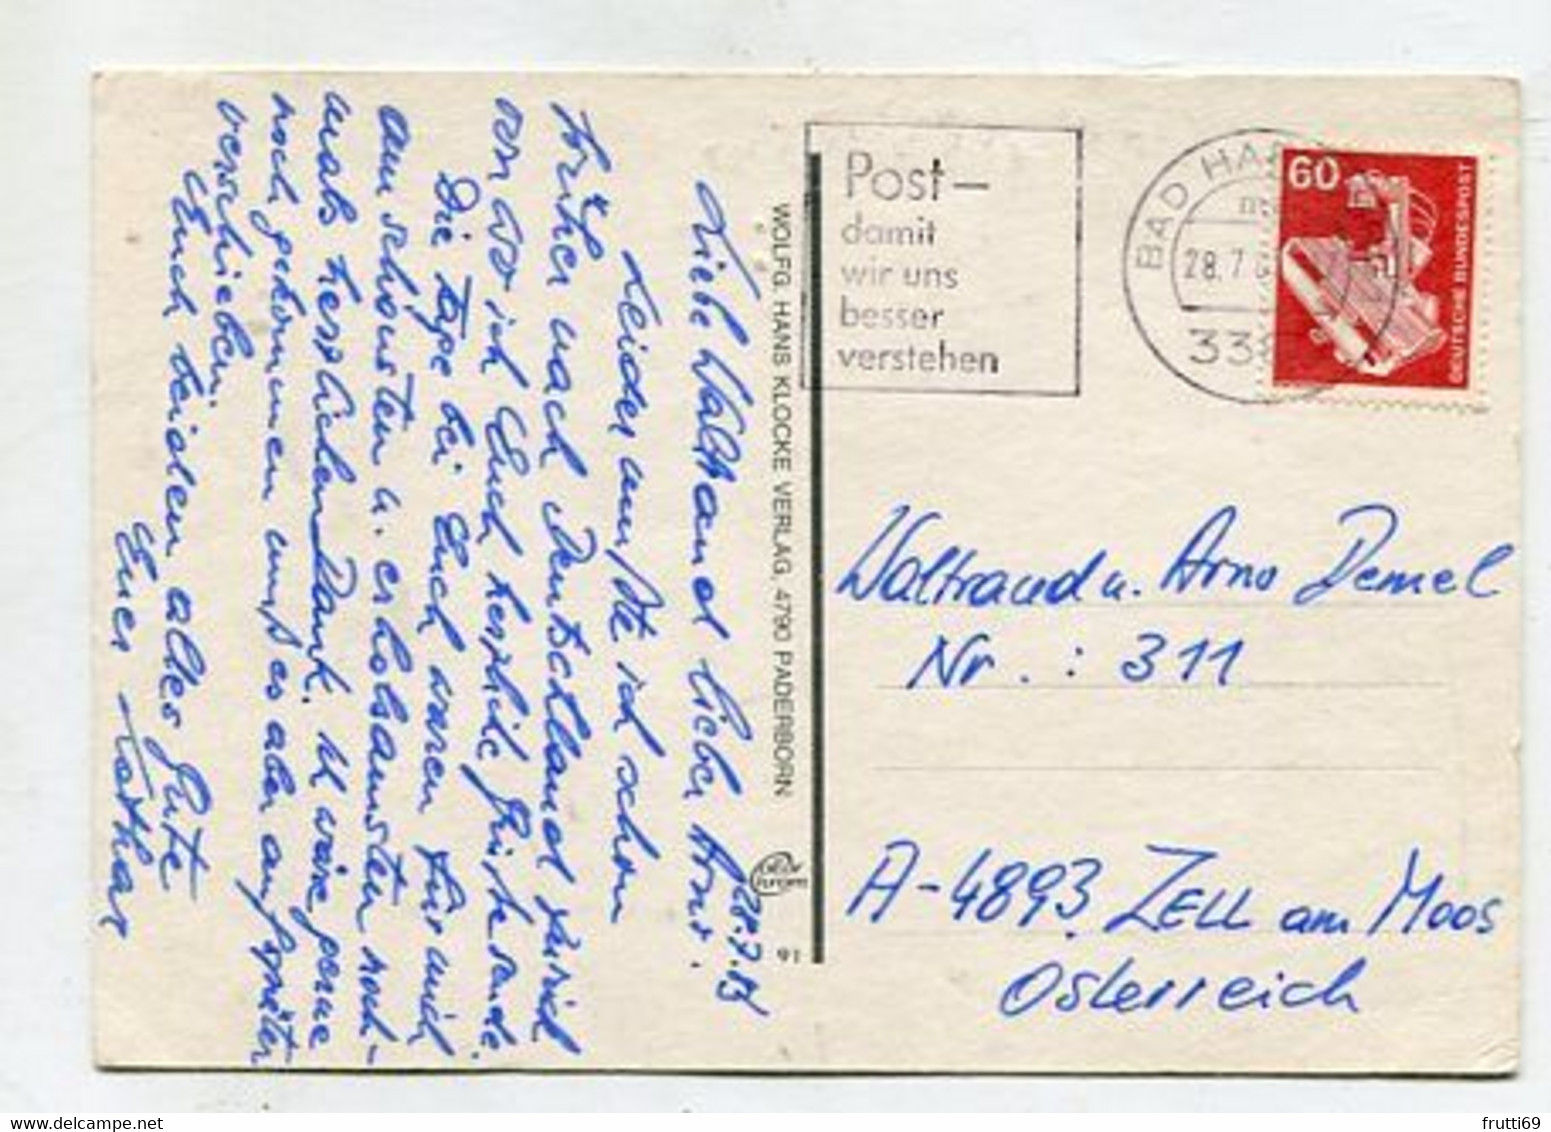 28.7.87
Liebe Waltraud lieber Arno!
Leider mußte ich schon
früher nach Deutschland zurück
von wo ich Euch herzliche Grüße sende.
Die Tage bei Euch waren für mich
am schönsten u. erholsamsten noch-
mals herzlichen Dank. Ich wäre gerne
noch gekommen muß es aber auf später
verschieben.
Euch beiden alles Gute
Euer Lothar
WOLFG. HANS KLOCKE VERLAG, 4790 PADERBORN
91
Post—
damit
wir uns
besser
verstehen
BAD HA
28.7
338
60
DEUTSCHE BUNDESPOST
Waltraud u. Arno Demel
Nr.: 311
A-4893 ZELL am Moos
Österreich
frutti69